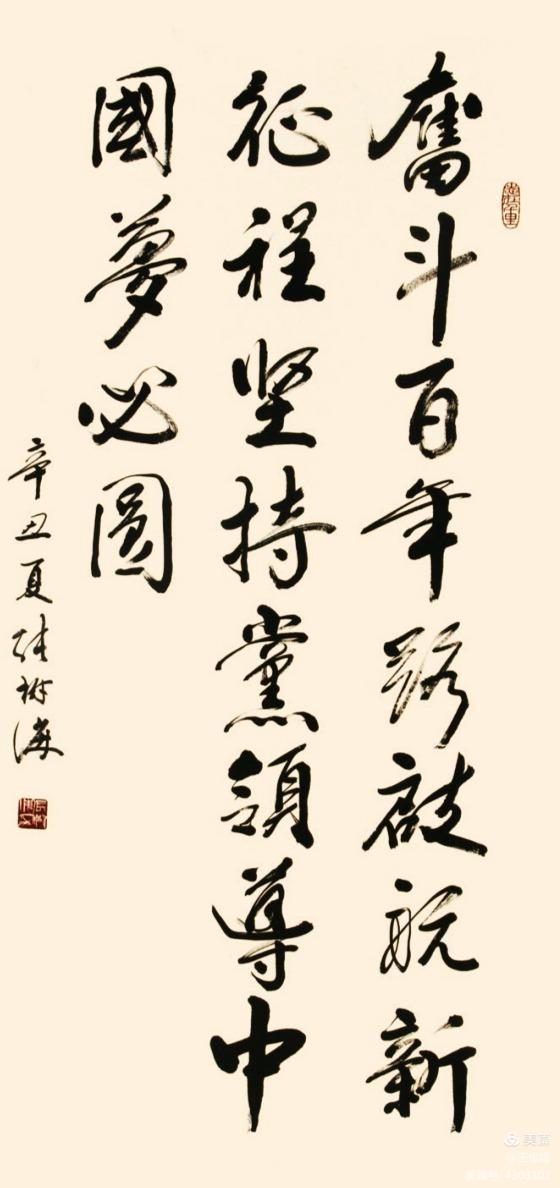 奮斗百年路啟航新
征程坚持黨領導中
國夢必圓
辛丑夏
美篇